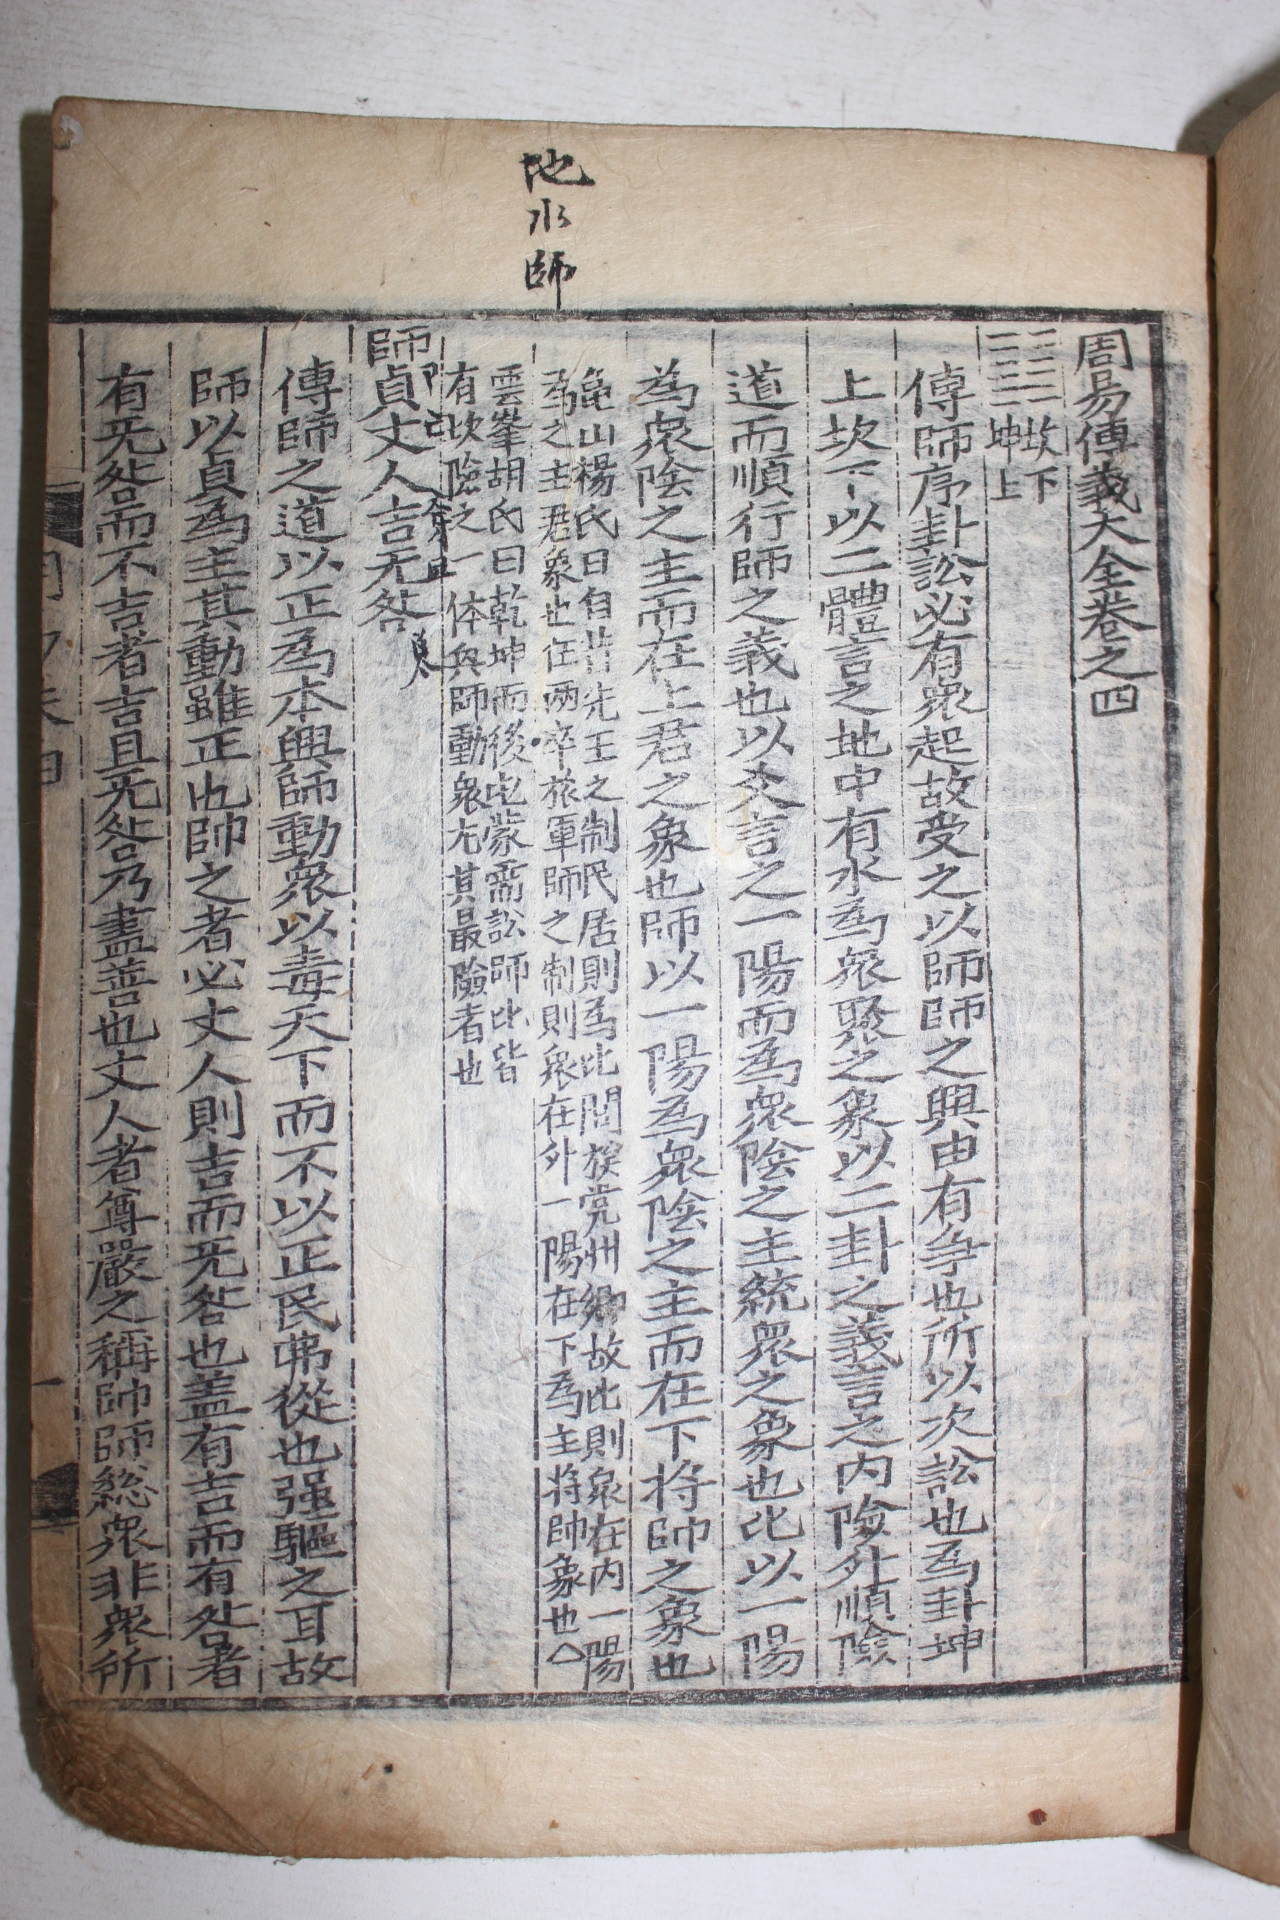 地水師
周易傳義大全卷之四
坎下
坤上
傳師序卦訟必有衆起故受之以師師之興由有爭也所以次訟也爲卦坤
上坎下以二體言之地中有水爲衆聚之象以二卦之義言之內險外順險
道而順行師之義也以爻言之一陽而爲衆陰之主統衆之象也比以一陽
為衆陰之主而在上君之象也師以一陽爲衆陰之主而在下將帥之象也
龜山楊氏曰自昔先王之制民居則爲比閭族党州鄕故比則衆在內一陽
爲之主君象也在兩卒旅軍師之制則衆在外一陽在下爲主將帥象也△
雲峯胡氏曰乾坤而後屯蒙需訟師比皆
有坎險之一体與師動衆尤其最險者也
師貞丈人吉无咎
傳師之道以正爲本興師動衆以毒天下而不以正民弗從也强驅之耳故
師以貞爲主其動雖正也帥之者必丈人則吉而无咎也盖有吉而有咎者
有无咎而不吉者吉且无咎乃盡善也丈人者尊嚴之稱帥師総衆非衆所